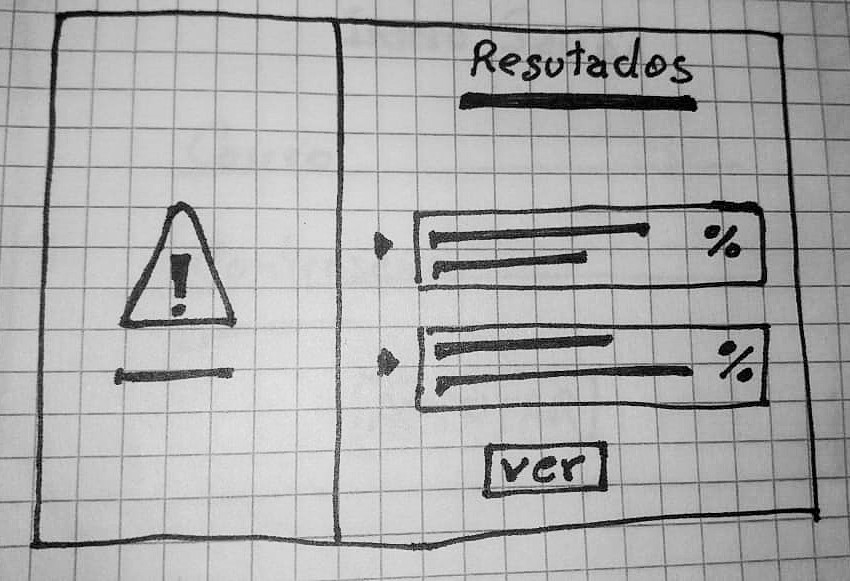 Resutados
!
%
%
ver